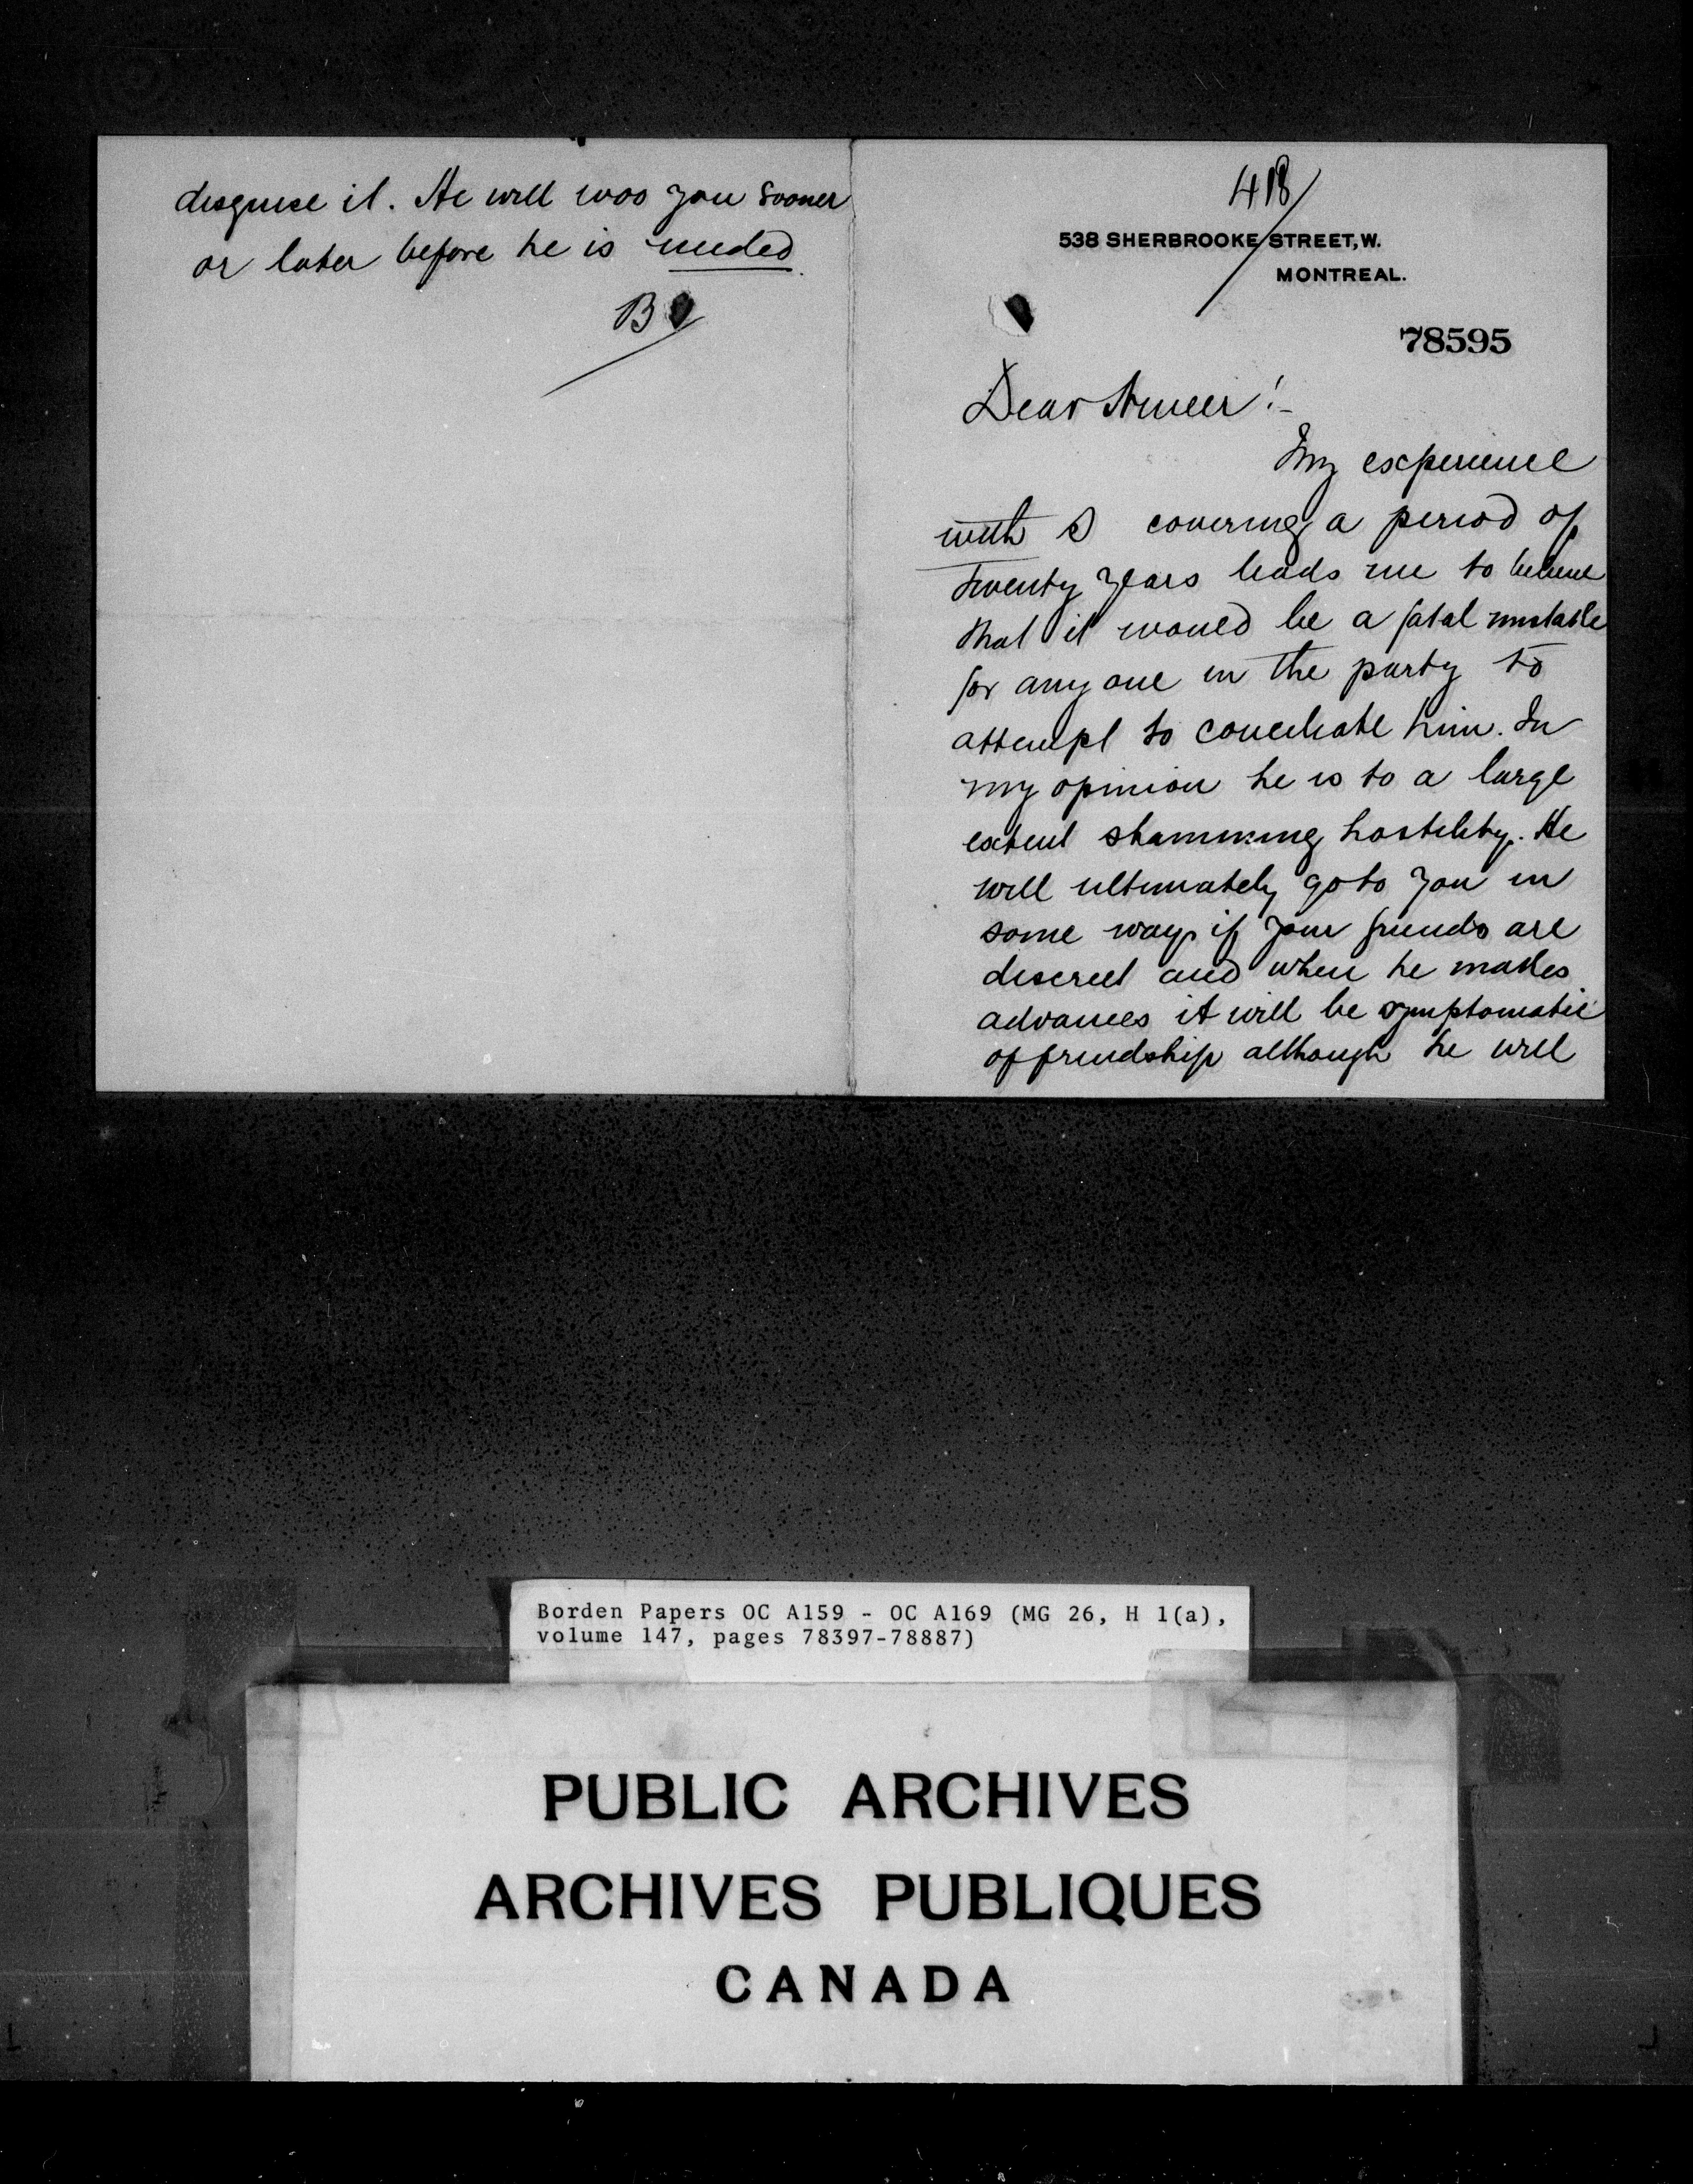 418
538 SHERBROOKE STREET, W.
MONTREAL.
78595
Dear Ameer :-
My experience
with S covering a period of
twenty years leads me to believe
that it would be a fatal mistake
for any one in the party to
attempt to conciliate him. In
my opinion he is to a large
extent shamming hostility. He
will ultimately go to you in
some way if your friends are
discreet and when he makes
advances it will be symptomatic
of friendship although he will
disguise it. He will woo you sooner
or later before he is needed.
B
Borden Papers OC A159 - OC A169 (MG 26, H 1(a),
volume 147, pages 78397-78887)
PUBLIC ARCHIVES
ARCHIVES PUBLIQUES
CANADA